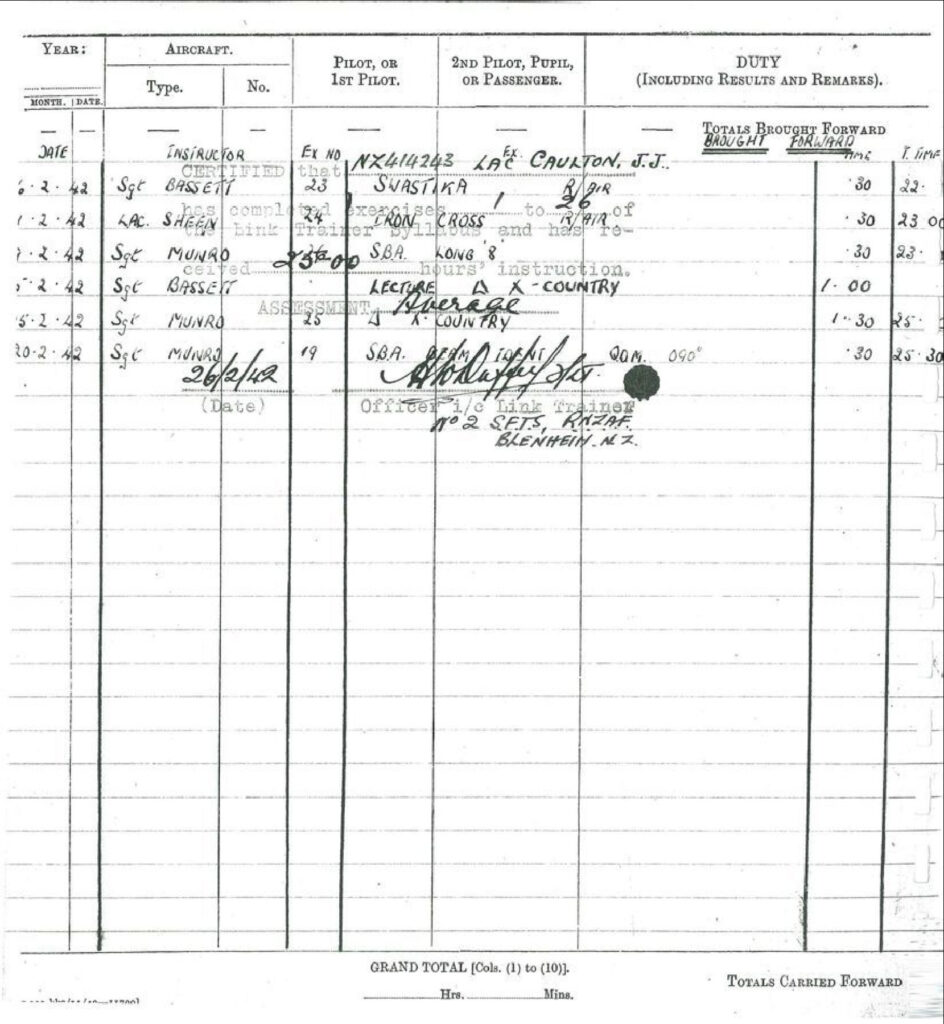 YEAR: AIRCRAFT. PILOT, OR 1ST PILOT. 2ND PILOT, PUPIL, OR PASSENGER. DUTY (INCLUDING RESULTS AND REMARKS).
MONTH. DATE. Type. No.
— — — — — — — TOTALS BROUGHT FORWARD
DATE INSTRUCTOR EX NO EX BROUGHT FORWARD TIME T. TIME
CERTIFIED that NZ414243 LAC CAULTON, J.J.
6·2·42 Sgt BASSETT 23 SWASTIKA R/AIR ·30 22·
has completed exercises 1 to 26 of
1·2·42 LAC. SHEEN 24 IRON CROSS R/AIR ·30 23 00
the Link Trainer Syllabus and has re-
·2·42 Sgt MUNRO SBA. LONG '8' ·30 23·
ceived 25·00 hours' instruction.
5·2·42 Sgt BASSETT LECTURE Δ X-COUNTRY 1·00
ASSESSMENT. Average
5·2·42 Sgt MUNRO 25 Δ X-COUNTRY 1·30 25·
20·2·42 Sgt MUNRO 19 SBA. BEAM IDENT QDM. 090° ·30 25·30
26/2/42
(Date) Officer i/c Link Trainer
No 2 S.F.T.S, R.N.Z.A.F.
BLENHEIM. N.Z.
GRAND TOTAL [Cols. (1) to (10)].
Hrs. Mins.
TOTALS CARRIED FORWARD